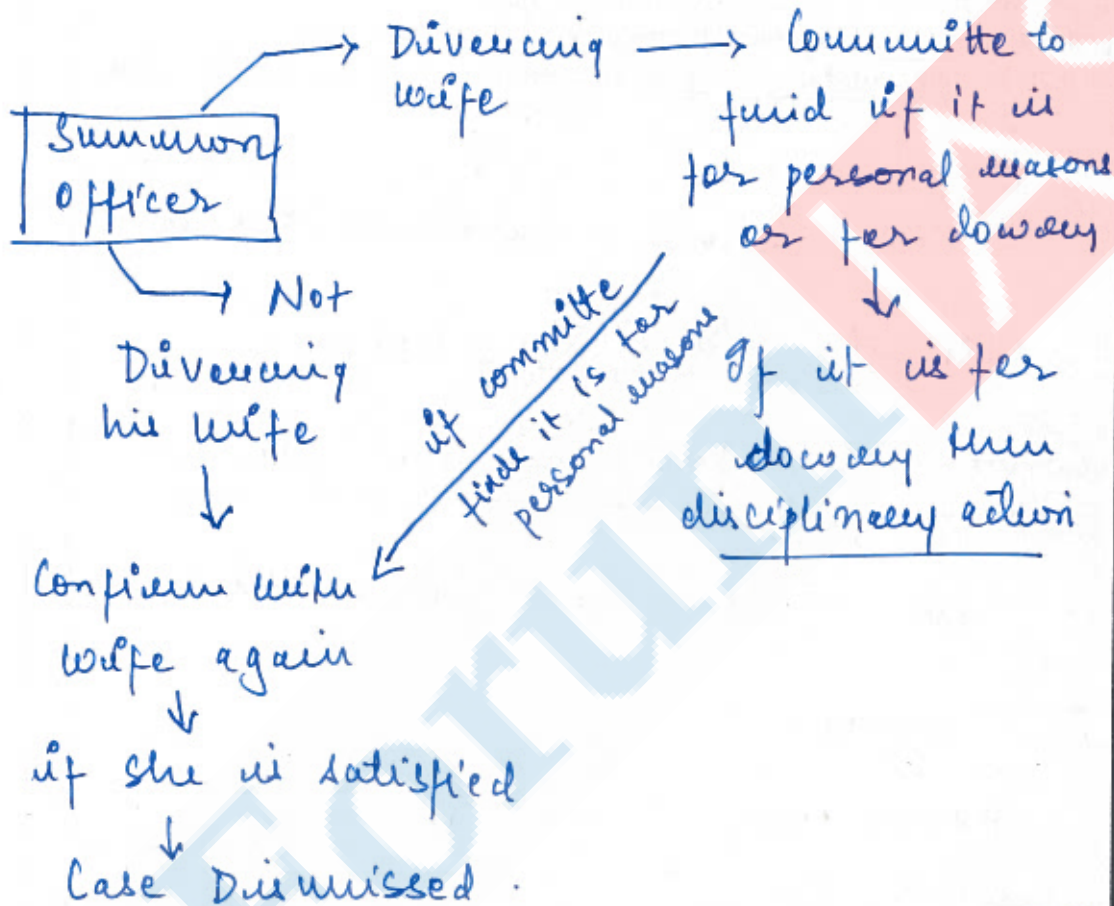 Summon
Officer
Divorcing
wife
Committe to
find if it is
for personal reasons
or for dowry
If it is for
dowry then
disciplinary action
if committe
finds it is for
personal reasons
Not
Divorcing
his wife
Confirm with
wife again
if she is satisfied
Case Dismissed.
Forum IAS